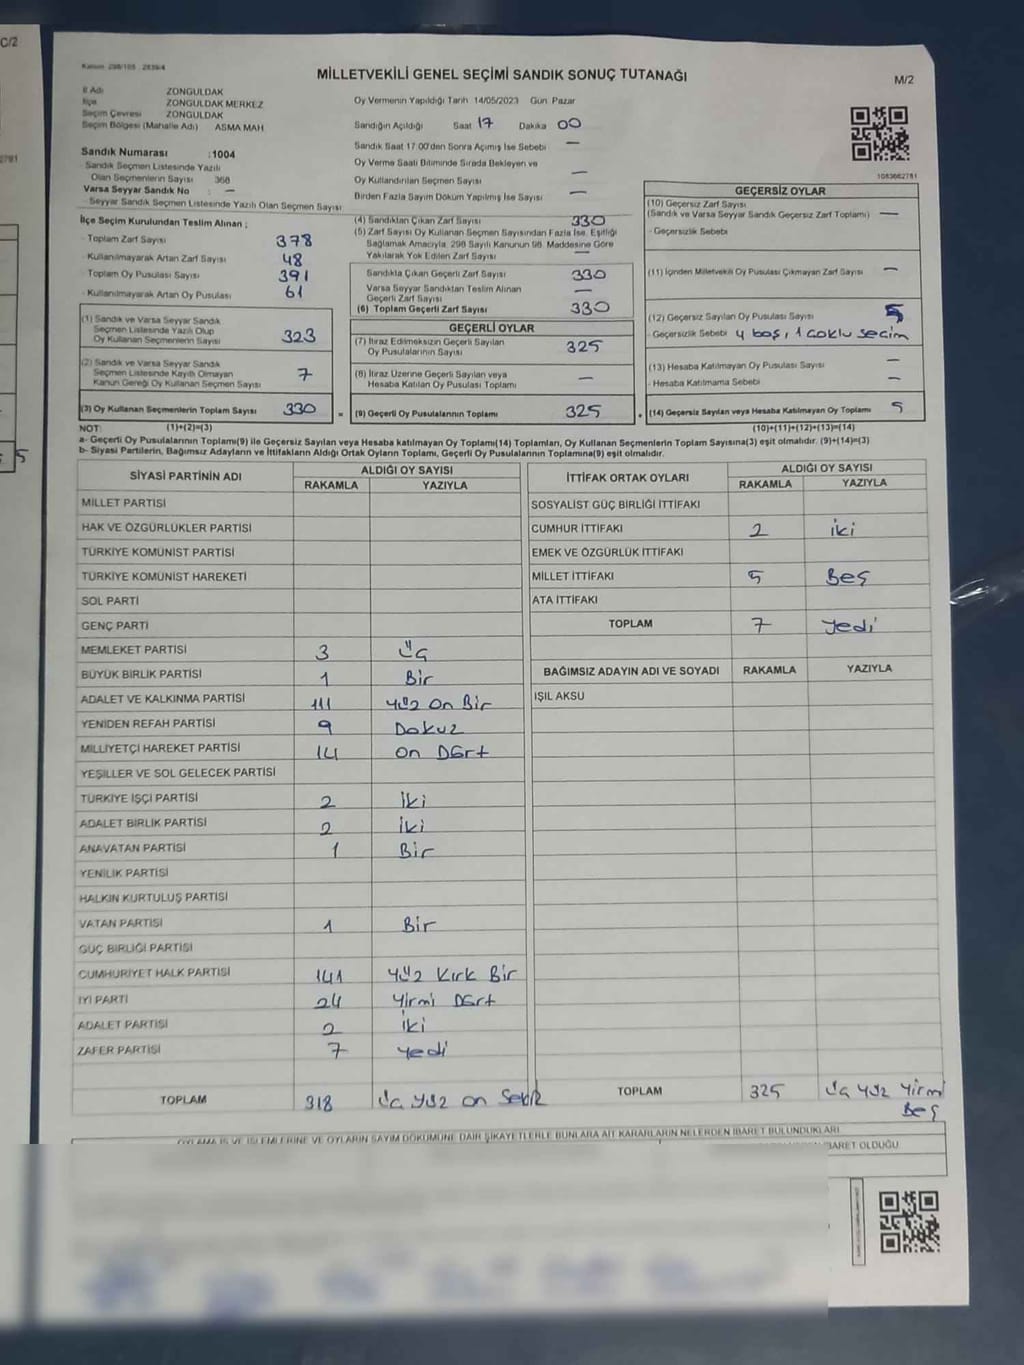 C/2
Kanun 298/105 2839/4
MİLLETVEKİLİ GENEL SEÇİMİ SANDIK SONUÇ TUTANAĞI
M/2
İl Adı ZONGULDAK
İlçe ZONGULDAK MERKEZ
Seçim Çevresi ZONGULDAK
Seçim Bölgesi (Mahalle Adı) ASMA MAH
Oy Vermenin Yapıldığı Tarih 14/05/2023 Gün Pazar
Sandığın Açıldığı Saat 17 Dakika 00
Sandık Saat 17:00'den Sonra Açılmış İse Sebebi —
Oy Verme Saati Bitiminde Sırada Bekleyen ve
Oy Kullandırılan Seçmen Sayısı —
Birden Fazla Sayım Döküm Yapılmış İse Sayısı —
Sandık Numarası :1004
Sandık Seçmen Listesinde Yazılı
Olan Seçmenlerin Sayısı 368
Varsa Seyyar Sandık No : —
Seyyar Sandık Seçmen Listesinde Yazılı Olan Seçmen Sayısı
1083662781
İlçe Seçim Kurulundan Teslim Alınan ;
- Toplam Zarf Sayısı 378
- Kullanılmayarak Artan Zarf Sayısı 48
- Toplam Oy Pusulası Sayısı 391
- Kullanılmayarak Artan Oy Pusulası 61
(1) Sandık ve Varsa Seyyar Sandık
Seçmen Listesinde Yazılı Olup
Oy Kullanan Seçmenlerin Sayısı 323
(2) Sandık ve Varsa Seyyar Sandık
Seçmen Listesinde Kayıtlı Olmayan
Kanun Gereği Oy Kullanan Seçmen Sayısı 7
(3) Oy Kullanan Seçmenlerin Toplam Sayısı 330
(4) Sandıktan Çıkan Zarf Sayısı 330
(5) Zarf Sayısı Oy Kullanan Seçmen Sayısından Fazla İse, Eşitliği
Sağlamak Amacıyla, 298 Sayılı Kanunun 98. Maddesine Göre
Yakılarak Yok Edilen Zarf Sayısı —
Sandıkta Çıkan Geçerli Zarf Sayısı 330
Varsa Seyyar Sandıktan Teslim Alınan
Geçerli Zarf Sayısı —
(6) Toplam Geçerli Zarf Sayısı 330
GEÇERLİ OYLAR
(7) İtiraz Edilmeksizin Geçerli Sayılan
Oy Pusulalarının Sayısı 325
(8) İtiraz Üzerine Geçerli Sayılan veya
Hesaba Katılan Oy Pusulası Toplamı —
= (9) Geçerli Oy Pusulalarının Toplamı 325
GEÇERSİZ OYLAR
(10) Geçersiz Zarf Sayısı
(Sandık ve Varsa Seyyar Sandık Geçersiz Zarf Toplamı) —
- Geçersizlik Sebebi
(11) İçinden Milletvekili Oy Pusulası Çıkmayan Zarf Sayısı —
(12) Geçersiz Sayılan Oy Pusulası Sayısı 5
- Geçersizlik Sebebi 4 boş, 1 çoklu seçim
(13) Hesaba Katılmayan Oy Pusulası Sayısı —
- Hesaba Katılmama Sebebi —
+ (14) Geçersiz Sayılan veya Hesaba Katılmayan Oy Toplamı 5
NOT: (1)+(2)=(3) (10)+(11)+(12)+(13)=(14)
a- Geçerli Oy Pusulalarının Toplamı(9) ile Geçersiz Sayılan veya Hesaba katılmayan Oy Toplamı(14) Toplamları, Oy Kullanan Seçmenlerin Toplam Sayısına(3) eşit olmalıdır. (9)+(14)=(3)
b- Siyasi Partilerin, Bağımsız Adayların ve İttifakların Aldığı Ortak Oyların Toplamı, Geçerli Oy Pusulalarının Toplamına(9) eşit olmalıdır.
SİYASİ PARTİNİN ADI ALDIĞI OY SAYISI
RAKAMLA YAZIYLA
MİLLET PARTİSİ
HAK VE ÖZGÜRLÜKLER PARTİSİ
TÜRKİYE KOMÜNİST PARTİSİ
TÜRKİYE KOMÜNİST HAREKETİ
SOL PARTİ
GENÇ PARTİ
MEMLEKET PARTİSİ 3 Üç
BÜYÜK BİRLİK PARTİSİ 1 Bir
ADALET VE KALKINMA PARTİSİ 111 Yüz On Bir
YENİDEN REFAH PARTİSİ 9 Dokuz
MİLLİYETÇİ HAREKET PARTİSİ 14 On Dört
YEŞİLLER VE SOL GELECEK PARTİSİ
TÜRKİYE İŞÇİ PARTİSİ 2 İki
ADALET BİRLİK PARTİSİ 2 İki
ANAVATAN PARTİSİ 1 Bir
YENİLİK PARTİSİ
HALKIN KURTULUŞ PARTİSİ
VATAN PARTİSİ 1 Bir
GÜÇ BİRLİĞİ PARTİSİ
CUMHURİYET HALK PARTİSİ 141 Yüz Kırk Bir
İYİ PARTİ 24 Yirmi Dört
ADALET PARTİSİ 2 İki
ZAFER PARTİSİ 7 Yedi
TOPLAM 318 Üç Yüz On Sekiz
İTTİFAK ORTAK OYLARI ALDIĞI OY SAYISI
RAKAMLA YAZIYLA
SOSYALİST GÜÇ BİRLİĞİ İTTİFAKI
CUMHUR İTTİFAKI 2 İki
EMEK VE ÖZGÜRLÜK İTTİFAKI
MİLLET İTTİFAKI 5 Beş
ATA İTTİFAKI
TOPLAM 7 Yedi
BAĞIMSIZ ADAYIN ADI VE SOYADI RAKAMLA YAZIYLA
IŞIL AKSU
TOPLAM 325 Üç Yüz Yirmi
Beş
OYLAMA İŞ VE İŞLEMLERİNE VE OYLARIN SAYIM DÖKÜMÜNE DAİR ŞİKAYETLERLE BUNLARA AİT KARARLARIN NELERDEN İBARET BULUNDUKLARI
İBARET OLDUĞU